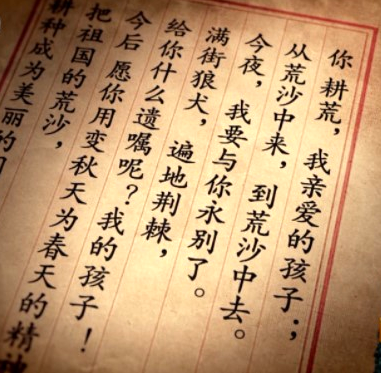 你耕荒，我亲爱的孩子；
从荒沙中来，到荒沙中去。
今夜，我要与你永别了。
满街狼犬，遍地荆棘，
给你什么遗嘱呢？我的孩子！
今后 愿你用变秋天为春天的精神
把祖国的荒沙，
耕种成为美丽的